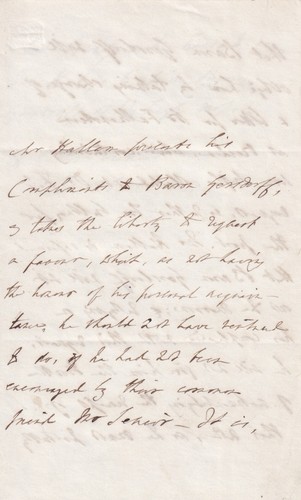 Mr Hallam presents his
Compliments to Baron Gersdorff,
& takes the liberty to request
a favour, which, as not having
the honour of his personal acquain-
tance, he should not have ventured
to do, if he had not been
encouraged by their common
friend Mr Senior – It is,